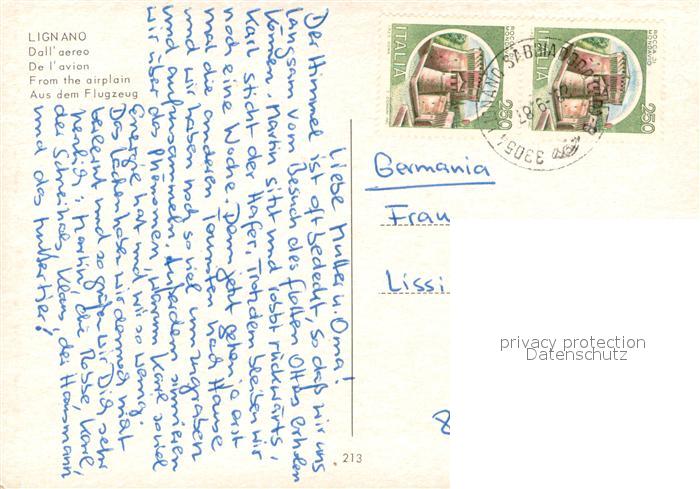 LIGNANO
Dall'aereo
De l'avion
From the airplain
Aus dem Flugzeug
Liebe Mutter u. Oma!
Der Himmel ist oft bedeckt, so daß wir uns
langsam vom Besuch des flotten Ottos erholen
können. Martin sitzt und robbt rückwärts,
Karl sticht der Hafer. Trotzdem bleiben wir
noch eine Woche. Denn jetzt gehen ja erst
mal die anderen Touristen nach Hause
und wir haben noch so viel umzugraben
und aufzusammeln. Außerdem sinnieren
wir über das Phänomen, warum Karl so viel
Energie hat und wir so wenig.
Das Lachen haben wir dennoch nicht
verlernt und so grüßen wir Dich sehr
herzlich: Martin die Robbe, Karl,
der Schreihals, Klaus, der Hausmann
und das Muttertier!
ROCCA DI
MONDAVIO
ITALIA
250
ROCCA DI
MONDAVIO
ITALIA
250
33054 LIGNANO SABBIADORO
Germania
Frau
Lissi
8
privacy protection
Datenschutz
213